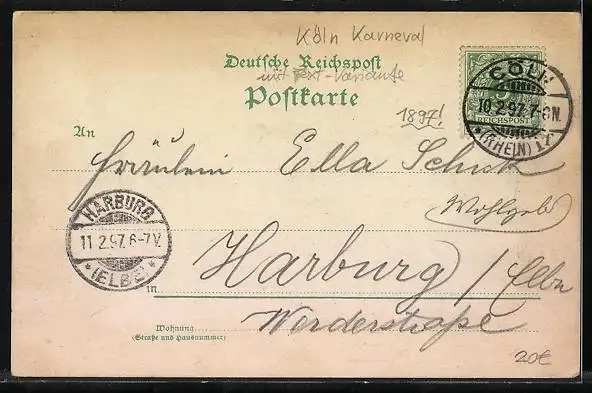 Köln Karneval
Deutsche Reichspost
mit Text-Variante
Postkarte
1897!
REICHSPOST
CÖLN
10.2.97. 7-8N.
(RHEIN)
An
Fräulein Ella Schick
Wohlgeb
HARBURG
11.2.97. 6-7V.
(ELBE)
Harburg / Elbe
in
Werderstraße
Wohnung
(Straße und Hausnummer)
20€